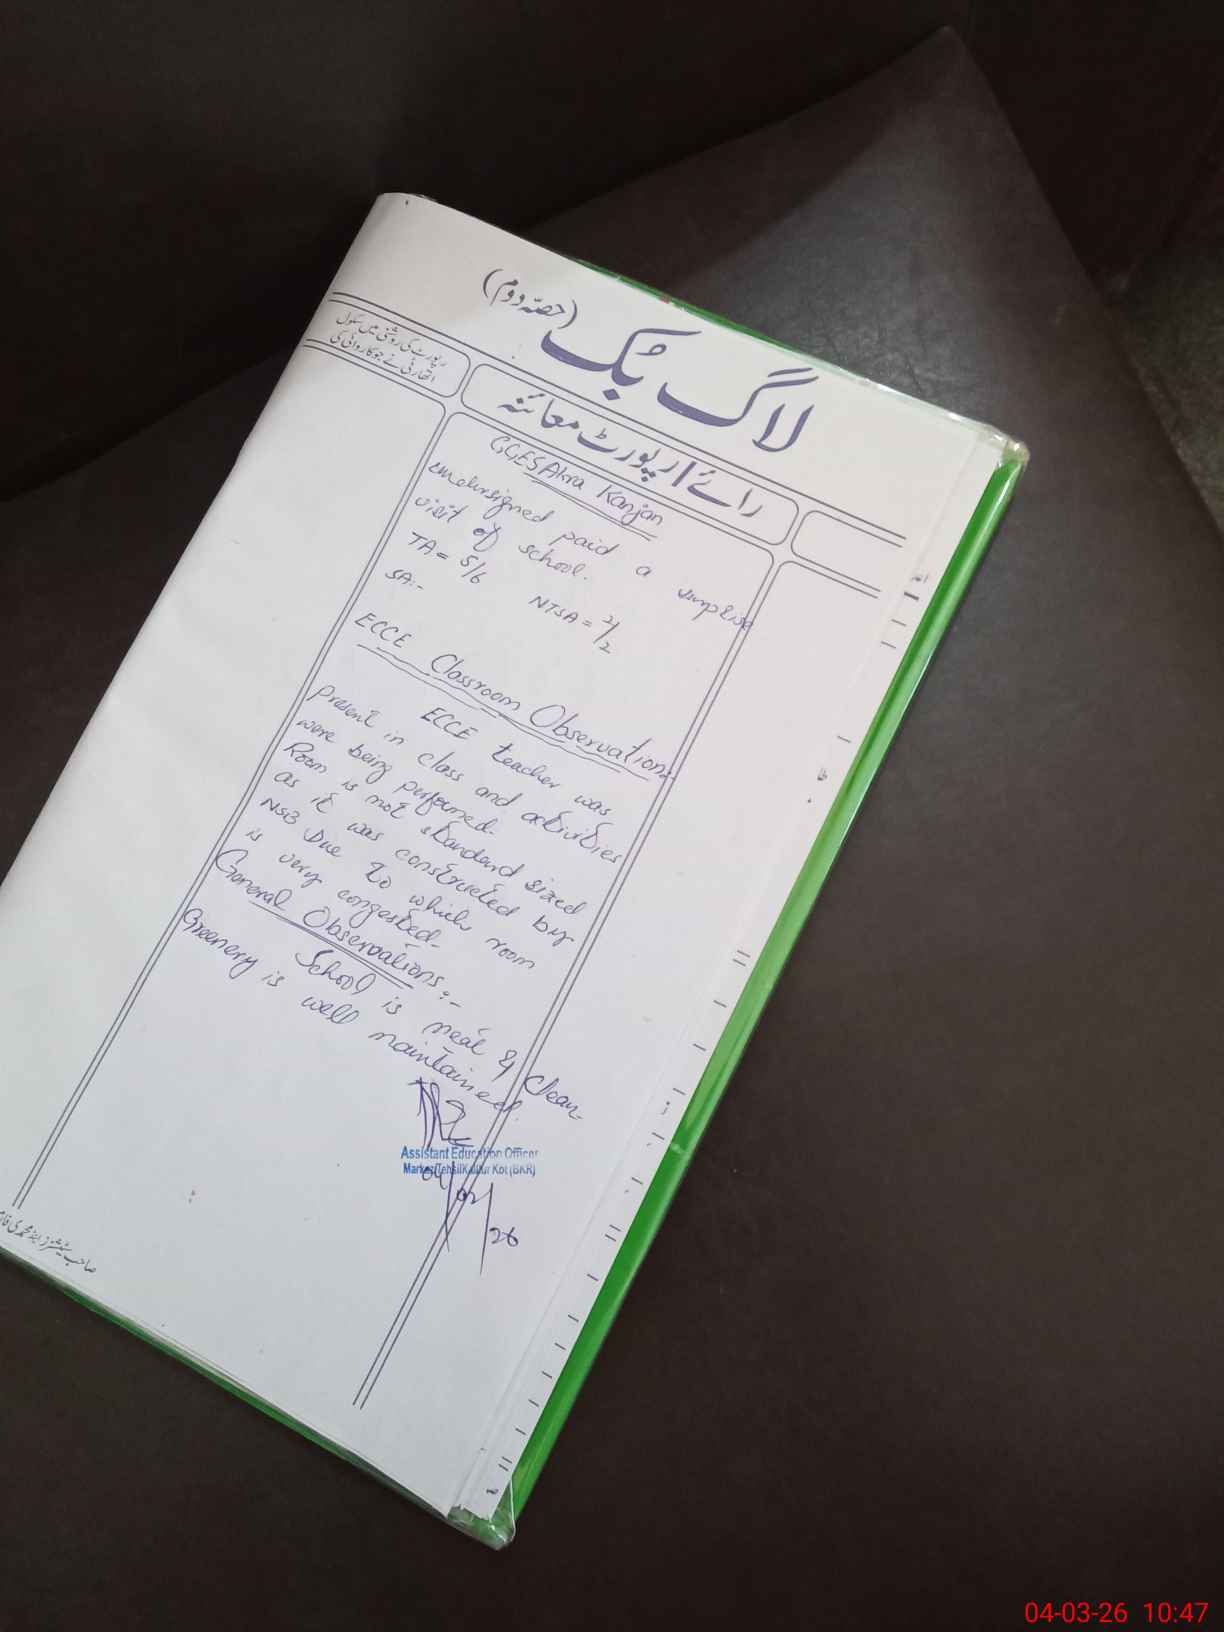 لاگ بُک (حصّہ دوم)
رائے / رپورٹ معائنہ
رپورٹ کی روشنی میں سکول
اتھارٹی نے جو کاروائی کی
GGES Akra Kanjan
undersigned paid a surprise
visit of school.
TA = 5/6 NTSA = 2/2
SA:-
ECCE Classroom Observation:-
ECCE teacher was
present in class and activities
were being performed.
Room is not standard sized
as it was constructed by
NSB Due to which room
is very congested.
General Observations:-
School is neat & clean.
Greenery is well maintained.
Assistant Education Officer
Markaz/Tehsil Kallur Kot (BKR)
04-03-26 10:47